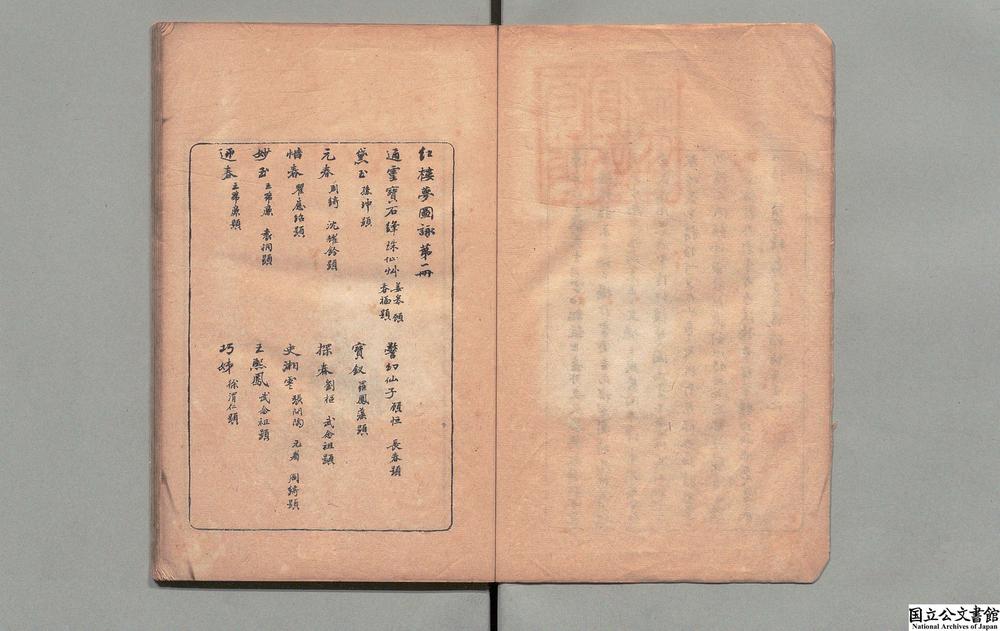 红楼夢圖詠第一冊
通靈寶石絳珠仙艸 姜皋題 春福題
警幻仙子 顾恒 長春題
黛玉 孫坤題
寶釵 羅鳳藻題
元春 周綺 沈耀鈴題
探春 劉枢 武念祖題
惜春 瞿應紹題
史湘雲 張問陶 元者 周綺題
妙玉 王希廉 袁桐題
王熙鳳 武念祖題
迎春 王希廉題
巧姊 徐渭仁題
国立公文書館
National Archives of Japan